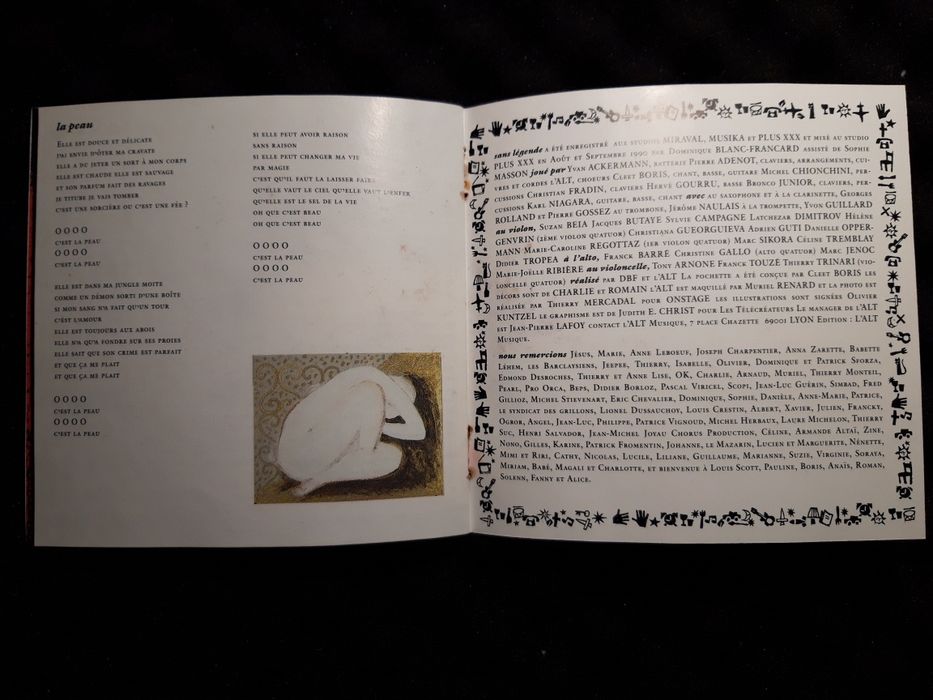 la peau
Elle est douce et délicate
j'ai envie d'ôter ma cravate
elle a du jeter un sort à mon corps
elle est chaude elle est sauvage
et son parfum fait des ravages
je titube je vais tomber
c'est une sorcière ou c'est une fée ?
O O O O
c'est la peau
O O O O
c'est la peau
elle est dans ma jungle moite
comme un démon sorti d'une boîte
si mon sang n'a fait qu'un tour
c'est l'amour
elle est toujours aux abois
elle n'a qu'a fondre sur ses proies
elle sait que son crime est parfait
et que ça me plaît
et que ça me plaît
O O O O
c'est la peau
O O O O
c'est la peau
si elle peut avoir raison
sans raison
si elle peut changer ma vie
par magie
c'est qu'il faut la laisser faire
qu'elle vaut le ciel qu'elle vaut l'enfer
qu'elle est le sel de la vie
oh que c'est beau
oh que c'est beau
O O O O
c'est la peau
O O O O
c'est la peau
sans légende a été enregistré aux studios MIRAVAL, MUSIKA et PLUS XXX et mixé au studio
PLUS XXX en Août et Septembre 1990 par Dominique BLANC-FRANCARD assisté de Sophie
MASSON joué par Yvan ACKERMANN, batterie Pierre ADENOT, claviers, arrangements, cui-
vres et cordes l'ALT, choeurs Cleet BORIS, chant, basse, guitare Michel CHIONCHINI, per-
cussions Christian FRADIN, claviers Hervé GOURRU, basse Bronco JUNIOR, claviers, per-
cussions Karl NIAGARA, guitare, basse, chant avec au saxophone et à la clarinette, Georges
ROLLAND et Pierre GOSSEZ au trombone, Jérôme NAULAIS à la trompette, Yvon GUILLARD
au violon, Suzan BEIA Jacques BUTAYE Sylvie CAMPAGNE Latchezar DIMITROV Hélène
GENVRIN (2ème violon quatuor) Christiana GUEORGUIEVA Adrien GUTI Danielle OPPER-
MANN Marie-Caroline REGOTTAZ (1er violon quatuor) Marc SIKORA Céline TREMBLAY
Didier TROPEA à l'alto, Franck BARRÉ Christine GALLO (alto quatuor) Marc JENOC
Marie-Joëlle RIBIÈRE au violoncelle, Tony ARNONE Franck TOUZE Thierry TRINARI (vio-
loncelle quatuor) réalisé par DBF et l'ALT La pochette a été conçue par Cleet BORIS les
décors sont de CHARLIE et ROMAIN l'ALT est maquillé par Muriel RENARD et la photo est
réalisée par Thierry MERCADAL pour ONSTAGE les illustrations sont signées Olivier
KUNTZEL le graphisme est de Judith E. CHRIST pour Les Télécréateurs Le manager de l'ALT
est Jean-Pierre LAFOY contact l'ALT Musique, 7 place Chazette 69001 LYON Edition : L'ALT
Musique.
nous remercions Jésus, Marie, Anne Leboeuf, Joseph Charpentier, Anna Zarette, Babette
Léhem, les Barclaysiens, Jeepee, Thierry, Isabelle, Olivier, Dominique et Patrick Sforza,
Edmond Desroches, Thierry et Anne Lise, OK, Charlie, Arnaud, Muriel, Thierry Monteil,
Pearl, Pro Orca, Beps, Didier Borloz, Pascal Viricel, Scopi, Jean-Luc Guérin, Simbad, Fred
Gillioz, Michel Stievenart, Eric Chevalier, Dominique, Sophie, Danièle, Anne-Marie, Patrice,
le syndicat des grillons, Lionel Dussauchoy, Louis Crestin, Albert, Xavier, Julien, Francky,
Ogror, Angel, Jean-Luc, Philippe, Patrice Vignoud, Michel Herbaux, Laure Michelon, Thierry
Suc, Henri Salvador, Jean-Michel Joyau Chorus Production, Céline, Armande Altaï, Zine,
Nono, Gilles, Karine, Patrick Fromentin, Johanne, le Mazarin, Lucien et Marguerite, Nénette,
Mimi et Riri, Cathy, Nicolas, Lucile, Liliane, Guillaume, Marianne, Suzie, Virginie, Soraya,
Miriam, Babé, Magali et Charlotte, et bienvenue à Louis Scott, Pauline, Boris, Anaïs, Roman,
Solenn, Fanny et Alice.